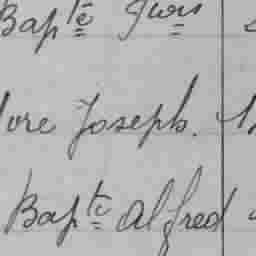 Bapte
ore Joseph.
Bapte Alfred